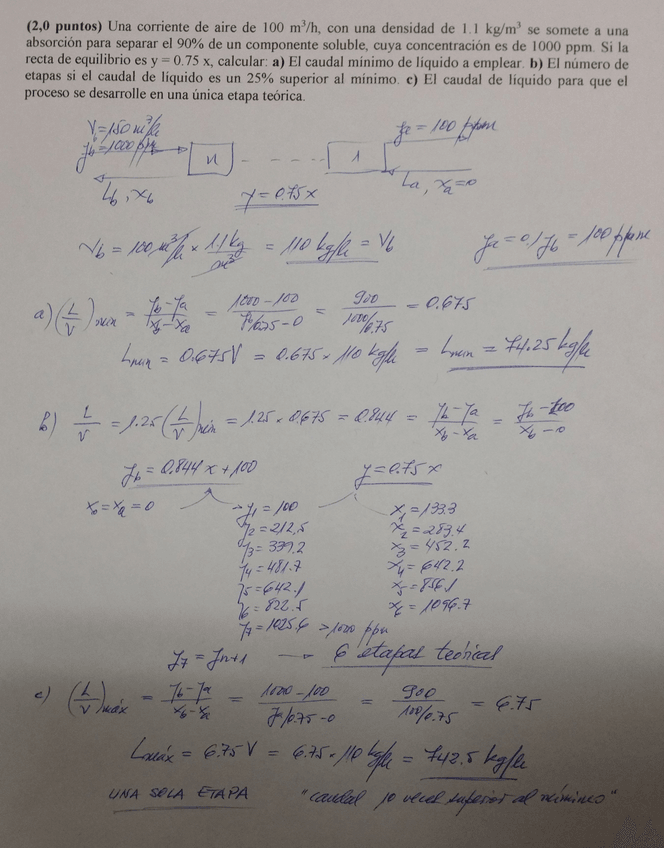 (2,0 puntos) Una corriente de aire de 100 m³/h, con una densidad de 1.1 kg/m³ se somete a una
absorción para separar el 90% de un componente soluble, cuya concentración es de 1000 ppm. Si la
recta de equilibrio es y = 0.75 x, calcular: a) El caudal mínimo de líquido a emplear. b) El número de
etapas si el caudal de líquido es un 25% superior al mínimo. c) El caudal de líquido para que el
proceso se desarrolle en una única etapa teórica.
V=150 m³/h
yb=1000 ppm
n
1
ya = 100 ppm
Lb, xb
y = 0.75x
La, xa=0
Vb = 100 m³/h × 1.1 kg/m³ = 110 kg/h = Vb
ya = 0.1 yb = 100 ppm
a) (L/V)min = (yb-ya)/(xb-xa) = (1000-100)/(yb/0.75-0) = 900/(1000/0.75) = 0.675
Lmin = 0.675V = 0.675 × 110 kg/h = Lmin = 74.25 kg/h
b) L/V = 1.25 (L/V)min = 1.25 × 0.675 = 0.844 = (yb-ya)/(xb-xa) = (yb-100)/(xb-0)
yb = 0.844 x + 100
y = 0.75 x
x0 = xa = 0
y1 = 100
x1 = 133.3
y2 = 212.5
x2 = 283.4
y3 = 339.2
x3 = 452.2
y4 = 481.7
x4 = 642.2
y5 = 642.1
x5 = 856.1
y6 = 822.5
x6 = 1096.7
y7 = 1025.6 > 1000 ppm
y7 = yn+1 → 6 etapas teóricas
c) (L/V)máx = (yb-ya)/(xb-xa) = (1000-100)/(ya/0.75-0) = 900/(100/0.75) = 6.75
Lmáx = 6.75 V = 6.75 × 110 kg/h = 742.5 kg/h
UNA SOLA ETAPA
"caudal 10 veces superior al mínimo"